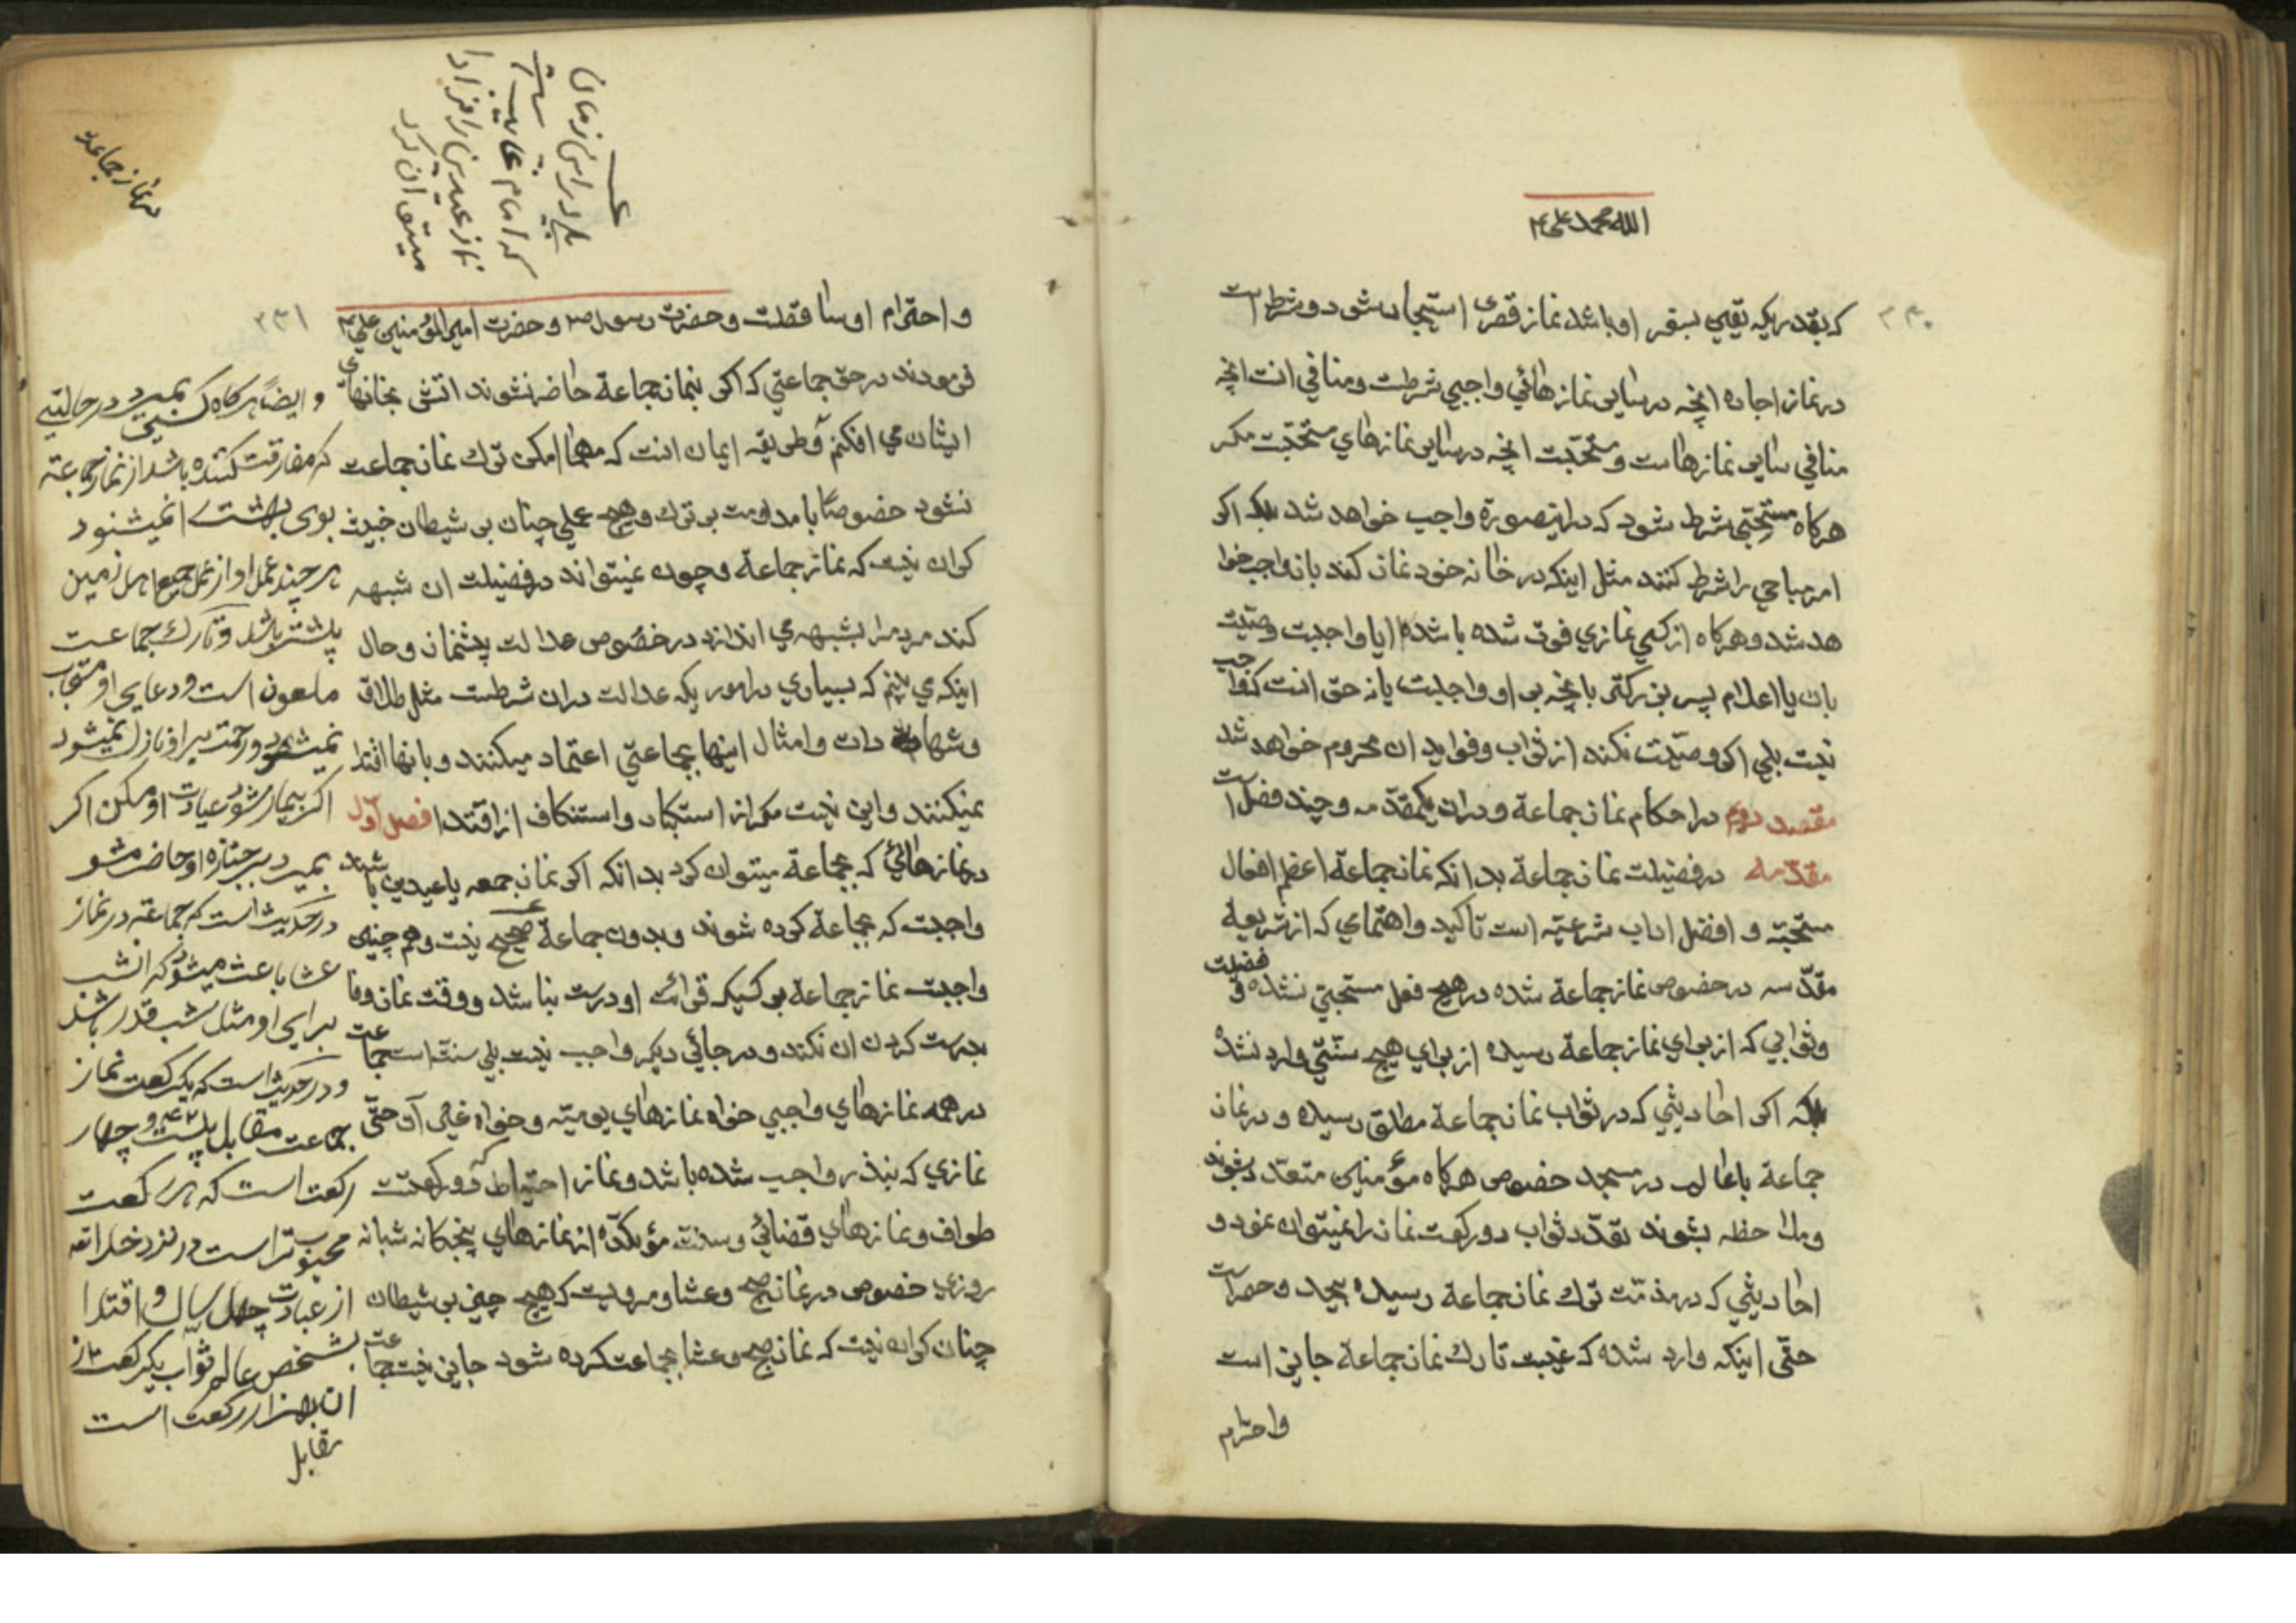 الله محمد علی ۴
۲۳۰
که بقدریکه یقین بسفر او باشد نماز قصری استیجار شود و شرط است
در نماز اجاره انچه در سایر نمازهائی واجبی شرطست و منافی انست انچه
منافی سایر نمازهاست و مستحبّست انچه در سایر نمازهای مستحبّست مکر
هرکاه مستحبّی شرط شود که در اینصورة واجب خواهد شد بلکه اکر
امر مباحی را شرط کنند مثل اینکه در خانه خود نماز کند باز واجب خوا
هد شد و هرکاه از کسی نمازی فوت شده باشد ایا واجبست وصیّت
بان یا اعلام پسر بزرکتر بانچه بر او واجبست یا نه حق انست که واجب
نیست بلی اکر وصیّت نکند از ثواب و فواید ان محروم خواهد شد
مقصد دوم در احکام نماز جماعة و دران یکمقدّمه و چند فصل است
مقدّمه در فضیلت نماز جماعة بدانکه نماز جماعة اعظم افعال
مستحبّه و افضل اداب شرعیّه است تاکید و اهتمامی که از شریعة
مقدّسه در خصوص نماز جماعة شده در هیچ فعل مستحبّی نشده و فضیلت
و ثوابی که از برای نماز جماعة رسیده از برای هیچ سنّتی وارد نشده
بلکه اکر احادیثی که در ثواب نماز جماعة مطلق رسیده و در نماز
جماعة با عالم در مسجد خصوص هرکاه مؤمنین متعدّد بشوند
و ملاحظه بشوند تعدّد ثواب دو رکعت نماز را نمیتوان نمود و
احادیثی که در مذمّت ترک نماز جماعة رسیده بیحد و حصر است
حتّی اینکه وارد شده که غیبت تارک نماز جماعة جایز است
واحترام
در نماز جماعة
بلی در این زمان
که امام غایب
نماز عیدین را فرادا
میتوان کرد
۲۳۱
و احترام او ساقطست و حضرت رسول ص و حضرت امیرالمؤمنین علی ۴
فرمودند در حق جماعتی که اکر بنماز جماعة حاضر نشوند اتش بخانهای
ایشان می افکنم و طریقه ایمان انست که مهما امکن ترک نماز جماعت
نشود خصوصاً با مداومت بر ترک و هیچ عملی چنان بر شیطان خبیث
کران نیست که نماز جماعة و چون نمیتواند در فضیلت ان شبهه
کند مردمرا بشبهه می اندازد در خصوص عدالت پیشنماز و حال
اینکه می بینم که بسیاری در اموریکه عدالت دران شرطست مثل طلاق
و شهادات و امثال اینها بجماعتی اعتماد میکنند و بانها اقتدا
نمیکنند و این نیست مکر از استکبار و استنکاف از اقتدا فصل اوّل
در نمازهائی که بجماعة میتوان کرد بدانکه اکر نماز جمعه یا عیدین باشد
واجبست که بجماعة کرده شوند و بدون جماعة صحیح نیست و هم چنین
واجبست نماز جماعة بر کسیکه قرائت او درست نباشد و وقت نماز وفا
بدرست کردن ان نکند و در جائی دیکر واجب نیست بلی سنّت است جماعت
در همه نمازهای واجبی خواه نمازهای یومیّه و خواه غیر ان حتّی
نمازی که بنذر واجب شده باشد و نماز احتیاط و دو رکعت
طواف و نمازهای قضائی و سنّت مؤکّده از نمازهای پنجکانه شبانه
روزی خصوص در نماز صبح و عشا و مرویست که هیچ چیز بر شیطان
چنان کران نیست که نماز صبح و عشا بجماعت کرده شود جایز نیست جماعت
و ایضاً هرکاه کسی بمیرد در حالتی
که مفارقت کننده باشد از نماز جماعة
بوی بهشت را نمیشنود
هر چند عمل او از عمل جمیع اهل زمین
بیشتر باشد و تارک جماعت
ملعون است و دعای او مستجاب
نمیشود و رحمت بر او نازل نمیشود
اکر بیمار شود عیادت او مکن اکر
بمیرد بر جنازه او حاضر مشو
در حدیث است که جماعة در نماز
عشا باعث میشود که انشب
برای او مثل شب قدر باشد
و در حدیث است که یکرکعت نماز
جماعت مقابل بیست و چهار
رکعت است که هر رکعت
محبوبتر است در نزد خدا
از عبادت چهل سال و اقتدا
بشخص عالم ثواب یکرکعت از
ان بهزار رکعت است
مقابل